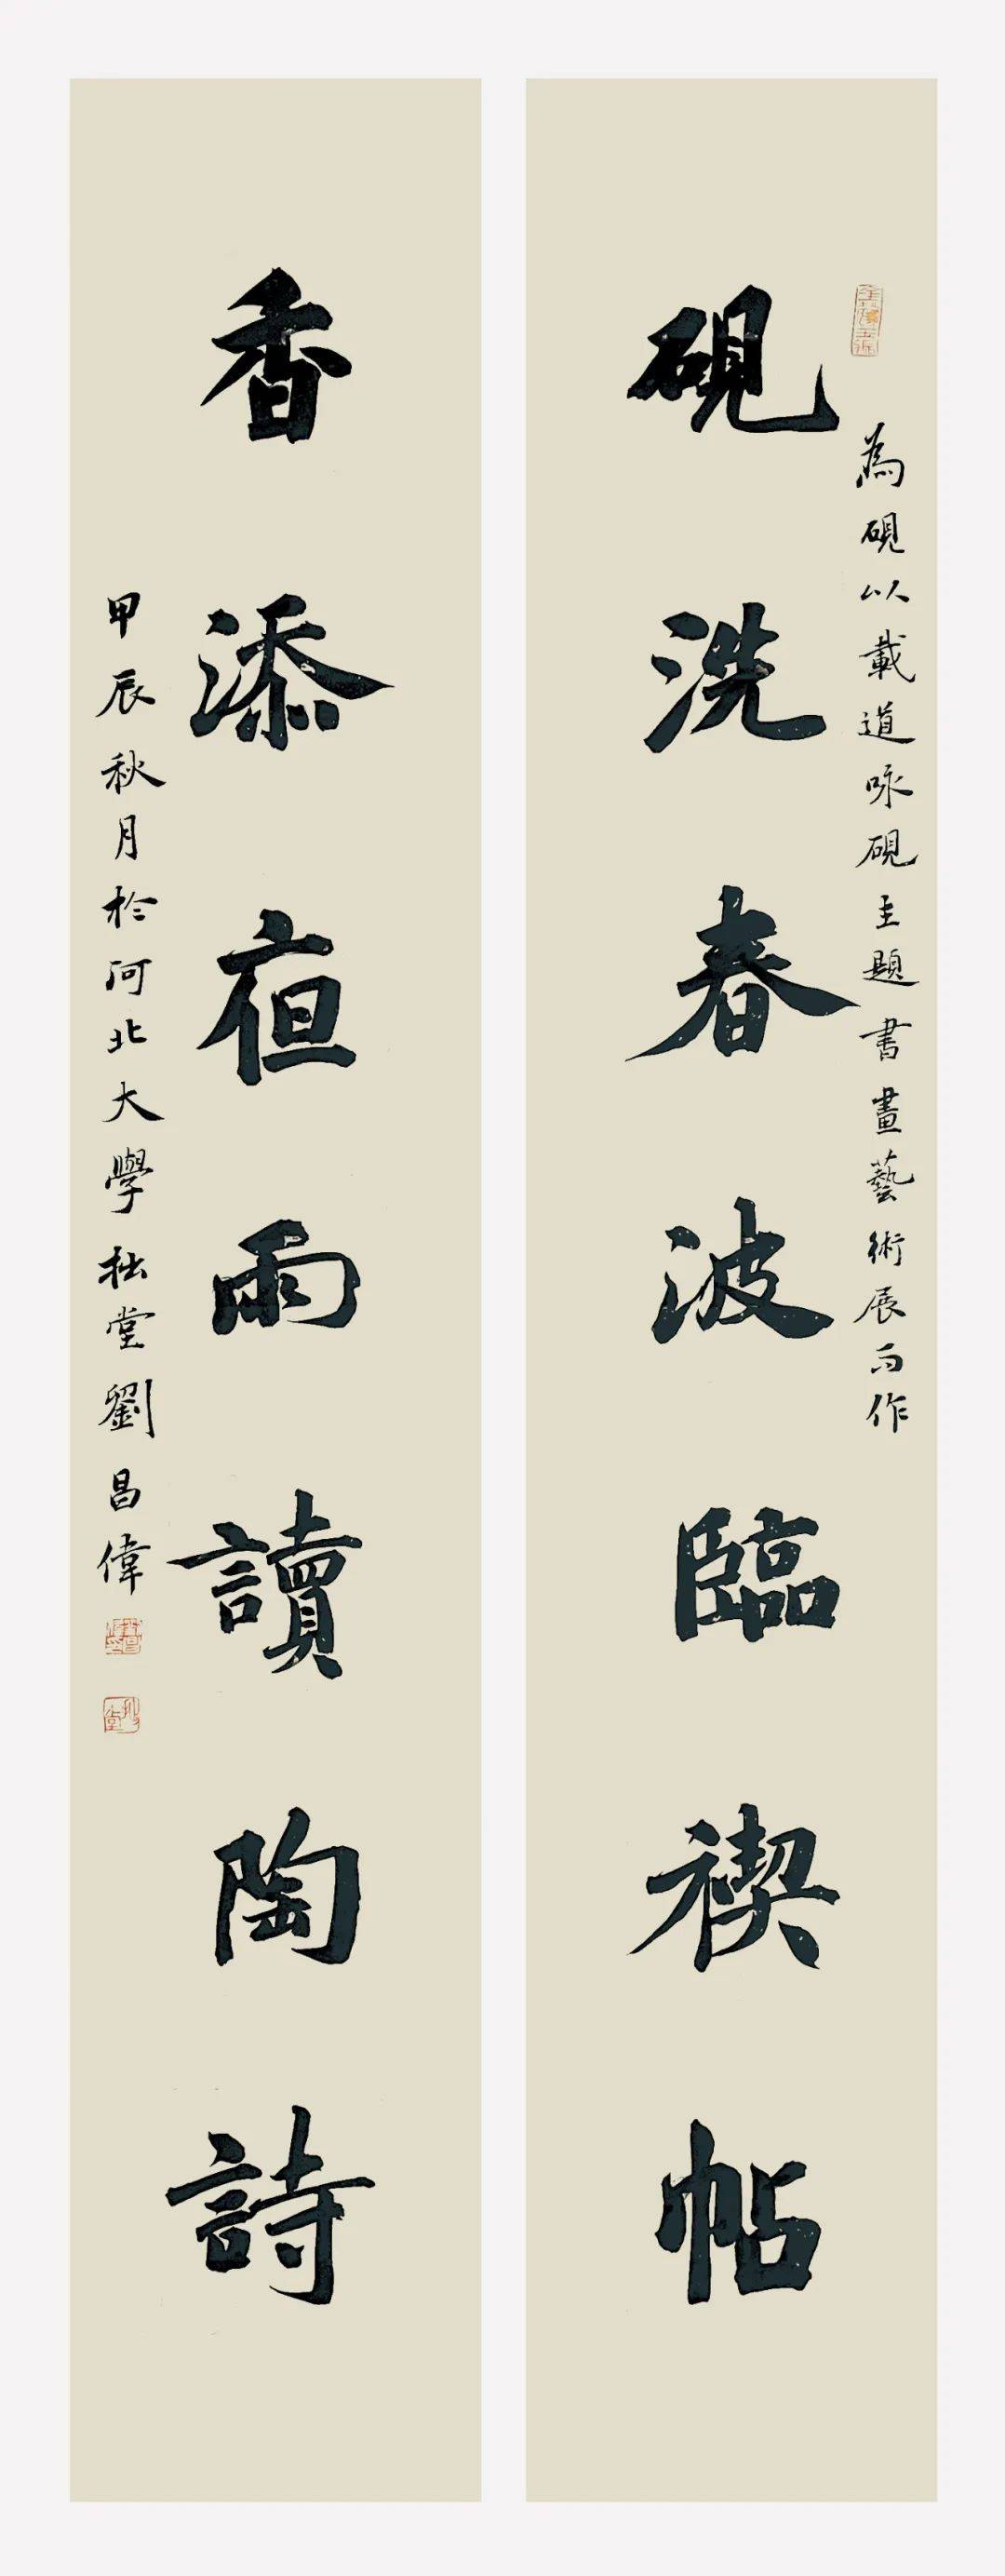 為硯以載道咏硯主題書畫藝術展而作
硯洗春波臨禊帖
香添夜雨讀陶詩
甲辰秋月於河北大學拙堂劉昌偉